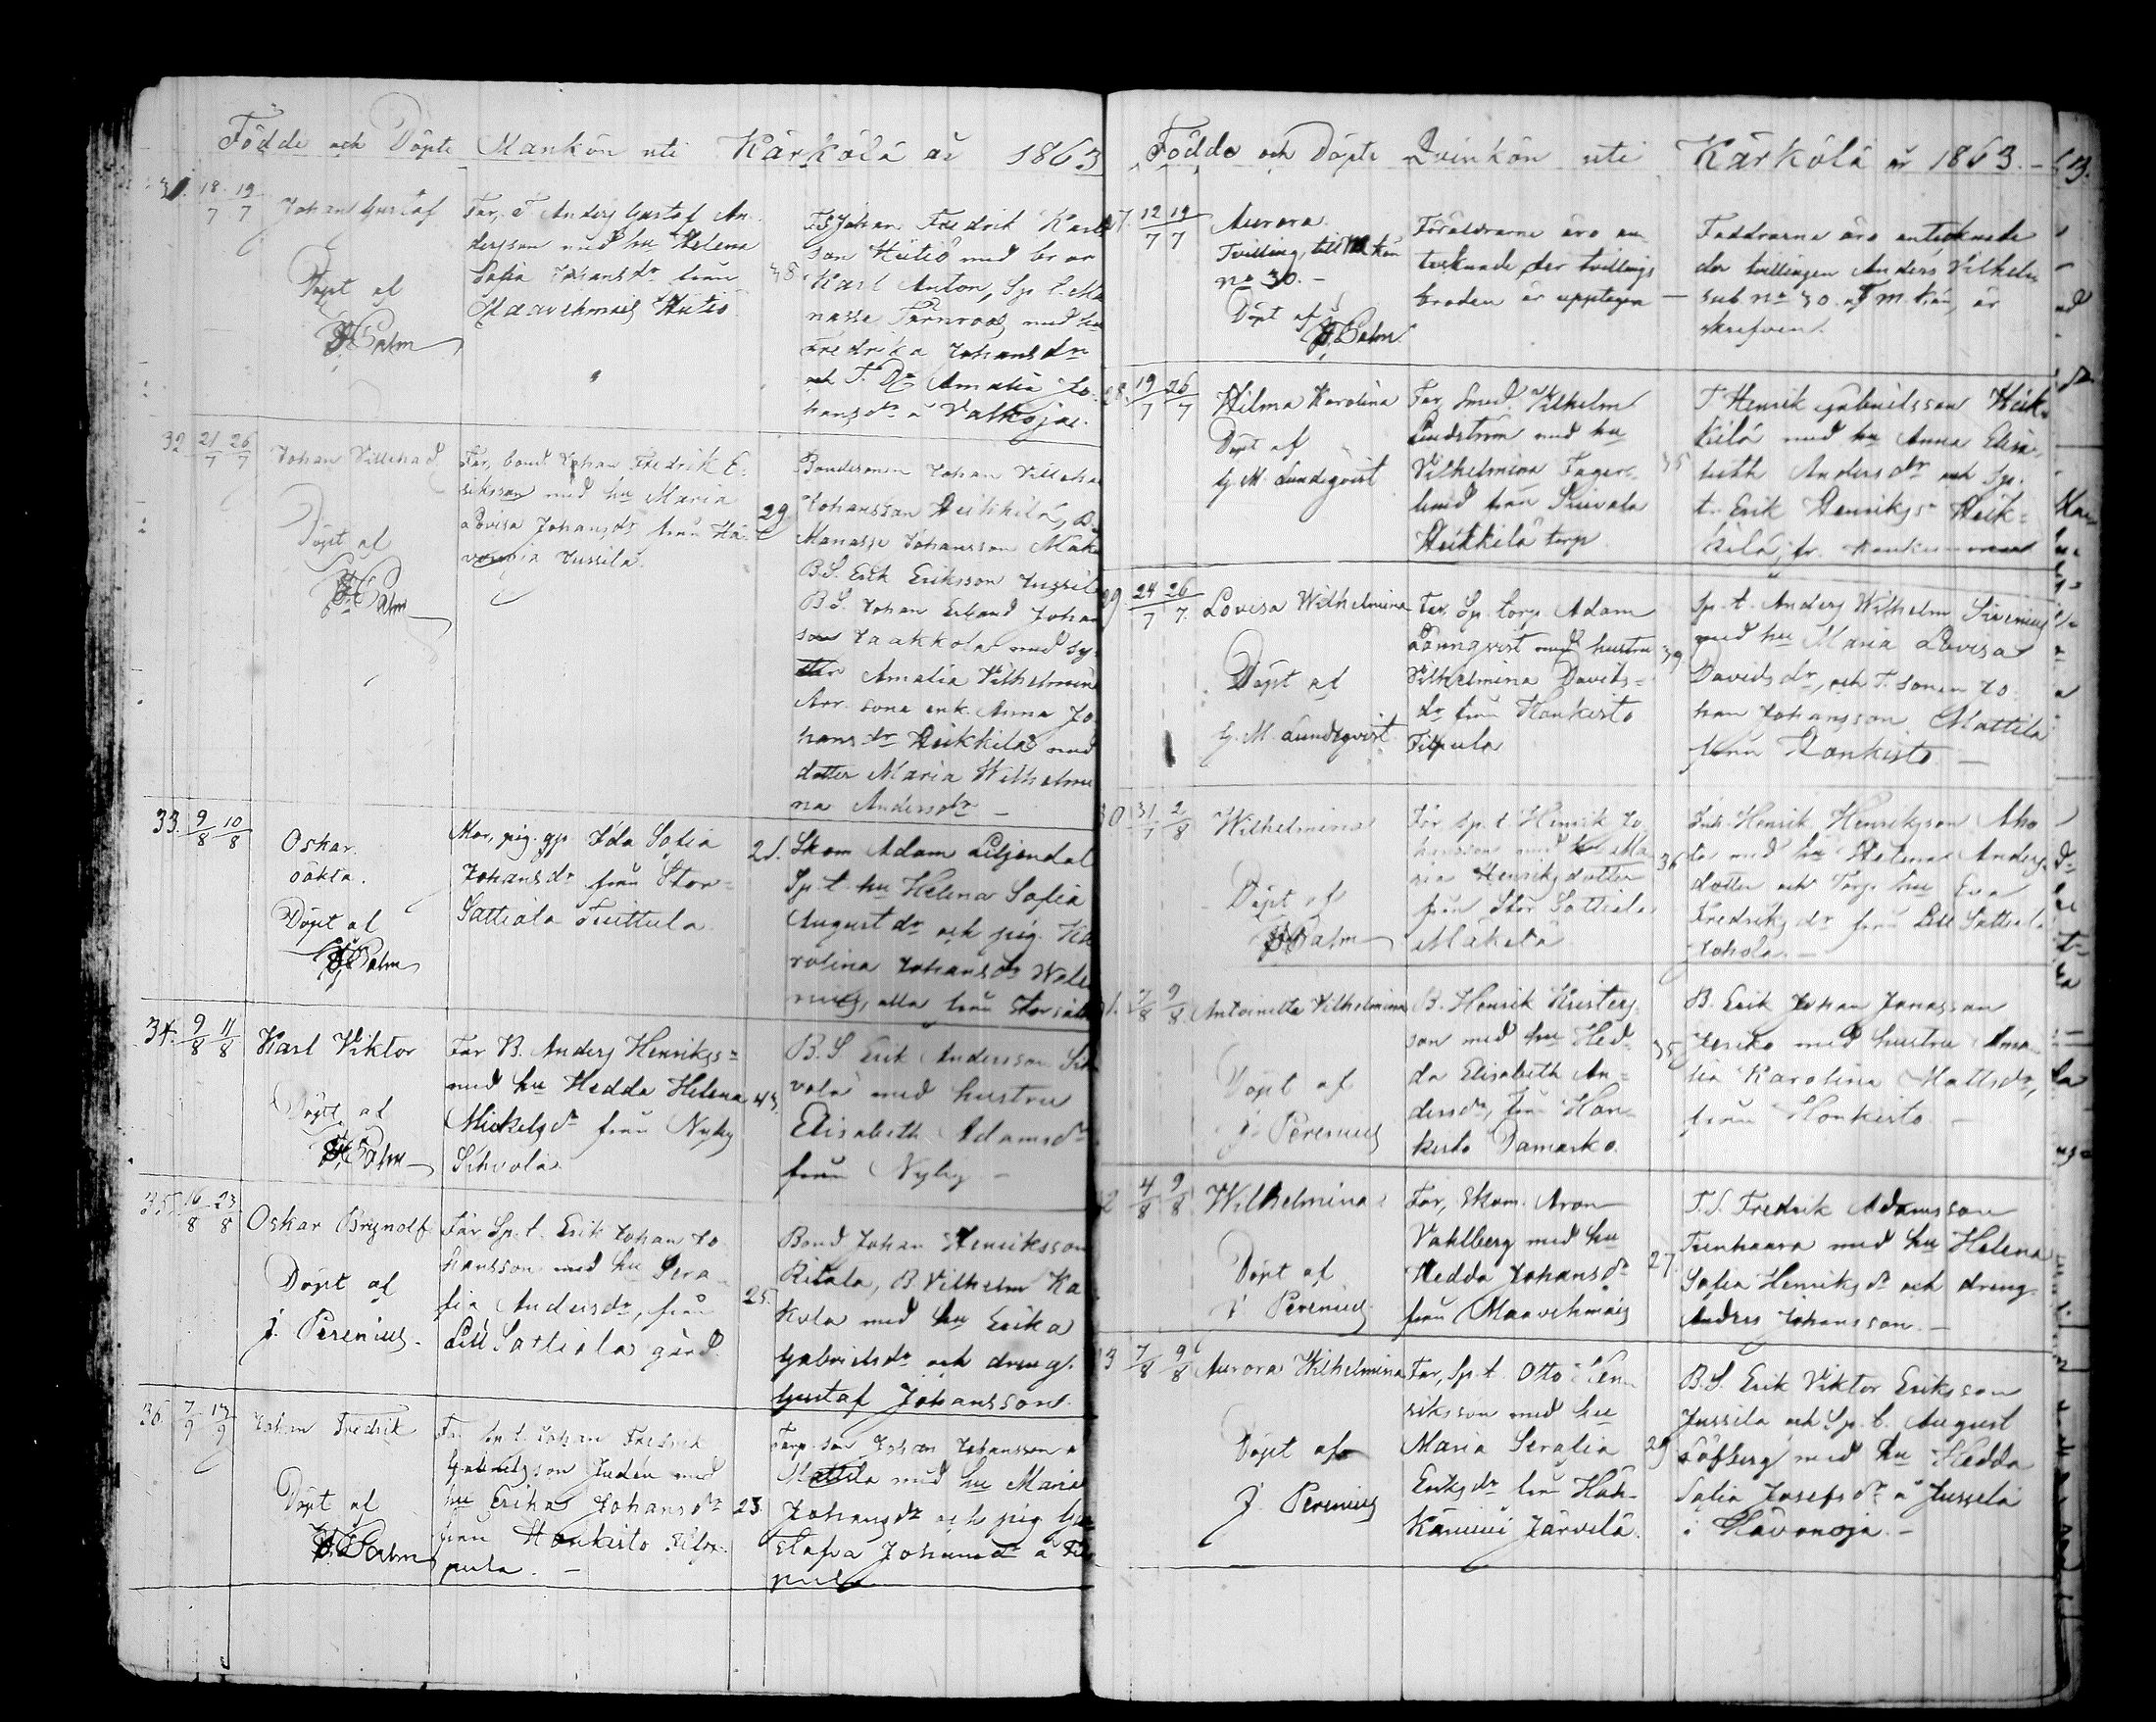 Födde och Döpte Mankön uti Kärkölä år 1863
31. 18/7 19/7 Johan Gustaf
Döpt af
Palm
Far, T. Anders Gustaf An-
dersson med hu Helena
Sofia Johansdr från
Maavehmais Hutio
38
Johan Fredrik Karls
son Hutio med bror
Karl Anton, Sp. t. Ma
nasse med hu
Fredrika Johansdr
och T. Dr Amalia Jo-
hansdr a Valkojas.
32. 21/7 26/7 Johan Villehad
Döpt af
Palm
Far, bond. Johan Fredrik E-
riksson med hu Maria
Lovisa Johansdr från Hä-
vänoja Jussila.
29.
Bondesonen Johan Villeha
Johansson Heikkilä, B.
Manasse Johansson Mäke
B.S. Erik Eriksson Jussila
B.S. Johan Erland Johan
son Jaakkola med sy-
ster Amalia Vilhelmina
enk. Anna Jo-
hansdr Heikkilä med
dotter Maria Wilhelmi
na Andersdr —
33. 9/8 10/8 Oskar
oäkta.
Döpt af
Palm
Mor, pig. Ida Sofia
Johansdr från Stor-
Sattiala Tuittula.
21.
Skom Adam Liljendal
Sp. t. hu Helena Sofia
Augustdr och pig. Ka
rolina Johansdr
alla från Storsatt
34. 9/8 11/8 Karl Viktor
Döpt af
Palm
Far B. Anders Henrikss-
med hu Hedda Helena
Mickelsdr från Nyby
Sihvola.
43.
B.S. Erik Andersson Sih
vola med hustru
Elisabeth Adamsdr
från Nyby —
35. 16/8 23/8 Oskar Brynolf
Döpt af
J. Perenius.
Far Sp. t. Erik Johan Jo-
hansson med hu Sera-
fia Andersdr, från
Lill Sattiala gård.
25.
Bond Johan Henriksson
Ritala, B. Vilhelm Ka
kola med hu Erika
Gabrielsdr och dreng.
Gustaf Johansson.
36. 7/9 13/9 Johan Fredrik
Döpt af
Palm
Far Sp. t. Johan Fredrik
Gabrielsson med
hu Erika Johansdr
från Honkisto Filp-
pula. —
23.
Torp. son Johan Johansson a
Mattila med hu Maria
Johansdr och pig Gu
stafva Johansdr a Filp
pula
Födde och Döpte Qvinkön uti Kärkölä år 1863. —
27 12/7 19/7 Aurora.
Tvilling, till M. kön
no 30. —
Döpt af
Palm
Föräldrarne äro an-
tecknade der tvillings
broden är upptagen —
Faddrarne äro antecknade
der tvillingen Anders Vilhelm
sub no 30. af m. kön, är
skrifven.
28. 19/7 26/7 Hilma Karolina
Döpt af
G. M. Lundqvist
Far, Smed. Vilhelm
Lindström med hu
Vilhelmina Fager-
lund från
Heikkilä torp
35
T Henrik Gabrielsson Heik-
kilä med hu Anna Elisa-
beth Andersdr och Sp.
t. Erik Henrikss- Heik-
kilä, fr.
29 24/7 26/7 Lovisa Wilhelmina
Döpt af
G. M. Lundqvist
Far, Sp. torp Adam
Lönnqvist med hustru
Vilhelmina Davids-
dr från Honkisto
Filpula
39
Sp. t. Anders Wilhelm Sirenius
med hu Maria Lovisa
Davidsdr, och T. sonen Jo
han Johansson Mattila
från Honkisto —
30 31/7 2/8 Wilhelmina
Döpt af
Palm
Far Sp. t. Henrik Jo
hansson med hu Ma
ria Henriksdotter
från Stor Sattiala
Mäkelä
36
Inh. Henrik Henriksson Aho
la med hu Helena Anders
dotter och Torp. hu Eva
Fredriksdr från Lill Sattiala
Johola. —
31. 7/8 9/8 Antoinetta Vilhelmina
Döpt af
J. Perenius
B. Henrik Kristers
son med hu Hed-
da Elisabeth An-
dersdr, från Hon-
kisto Damasko.
35
B. Erik Johan Jonasson
Jeriko med hustru Ama
lia Karolina Mattsdr,
från Honkisto —
32 4/8 9/8 Wilhelmina
Döpt af
J Perenius
Far, Skom. Aron
Vahlberg med hu
Hedda Johansdr
från Maavehmais
27.
T.S. Fredrik Adamsson
Teenhaara med hu Helena
Sofia Henriksdr och dreng.
Anders Johansson. —
33 7/8 9/8 Aurora Wilhelmina
Döpt af
J. Perenius
Far, Sp. t. Otto Hen
riksson med hu
Maria Serafia
Eriksdr från Häh-
käniemi Järvelä.
29
B.S. Erik Viktor Eriksson
Jussila och Sp. t. August
Löfberg med hu Hedda
Sofia Josefsdr a Jussila
i Hävänoja. —